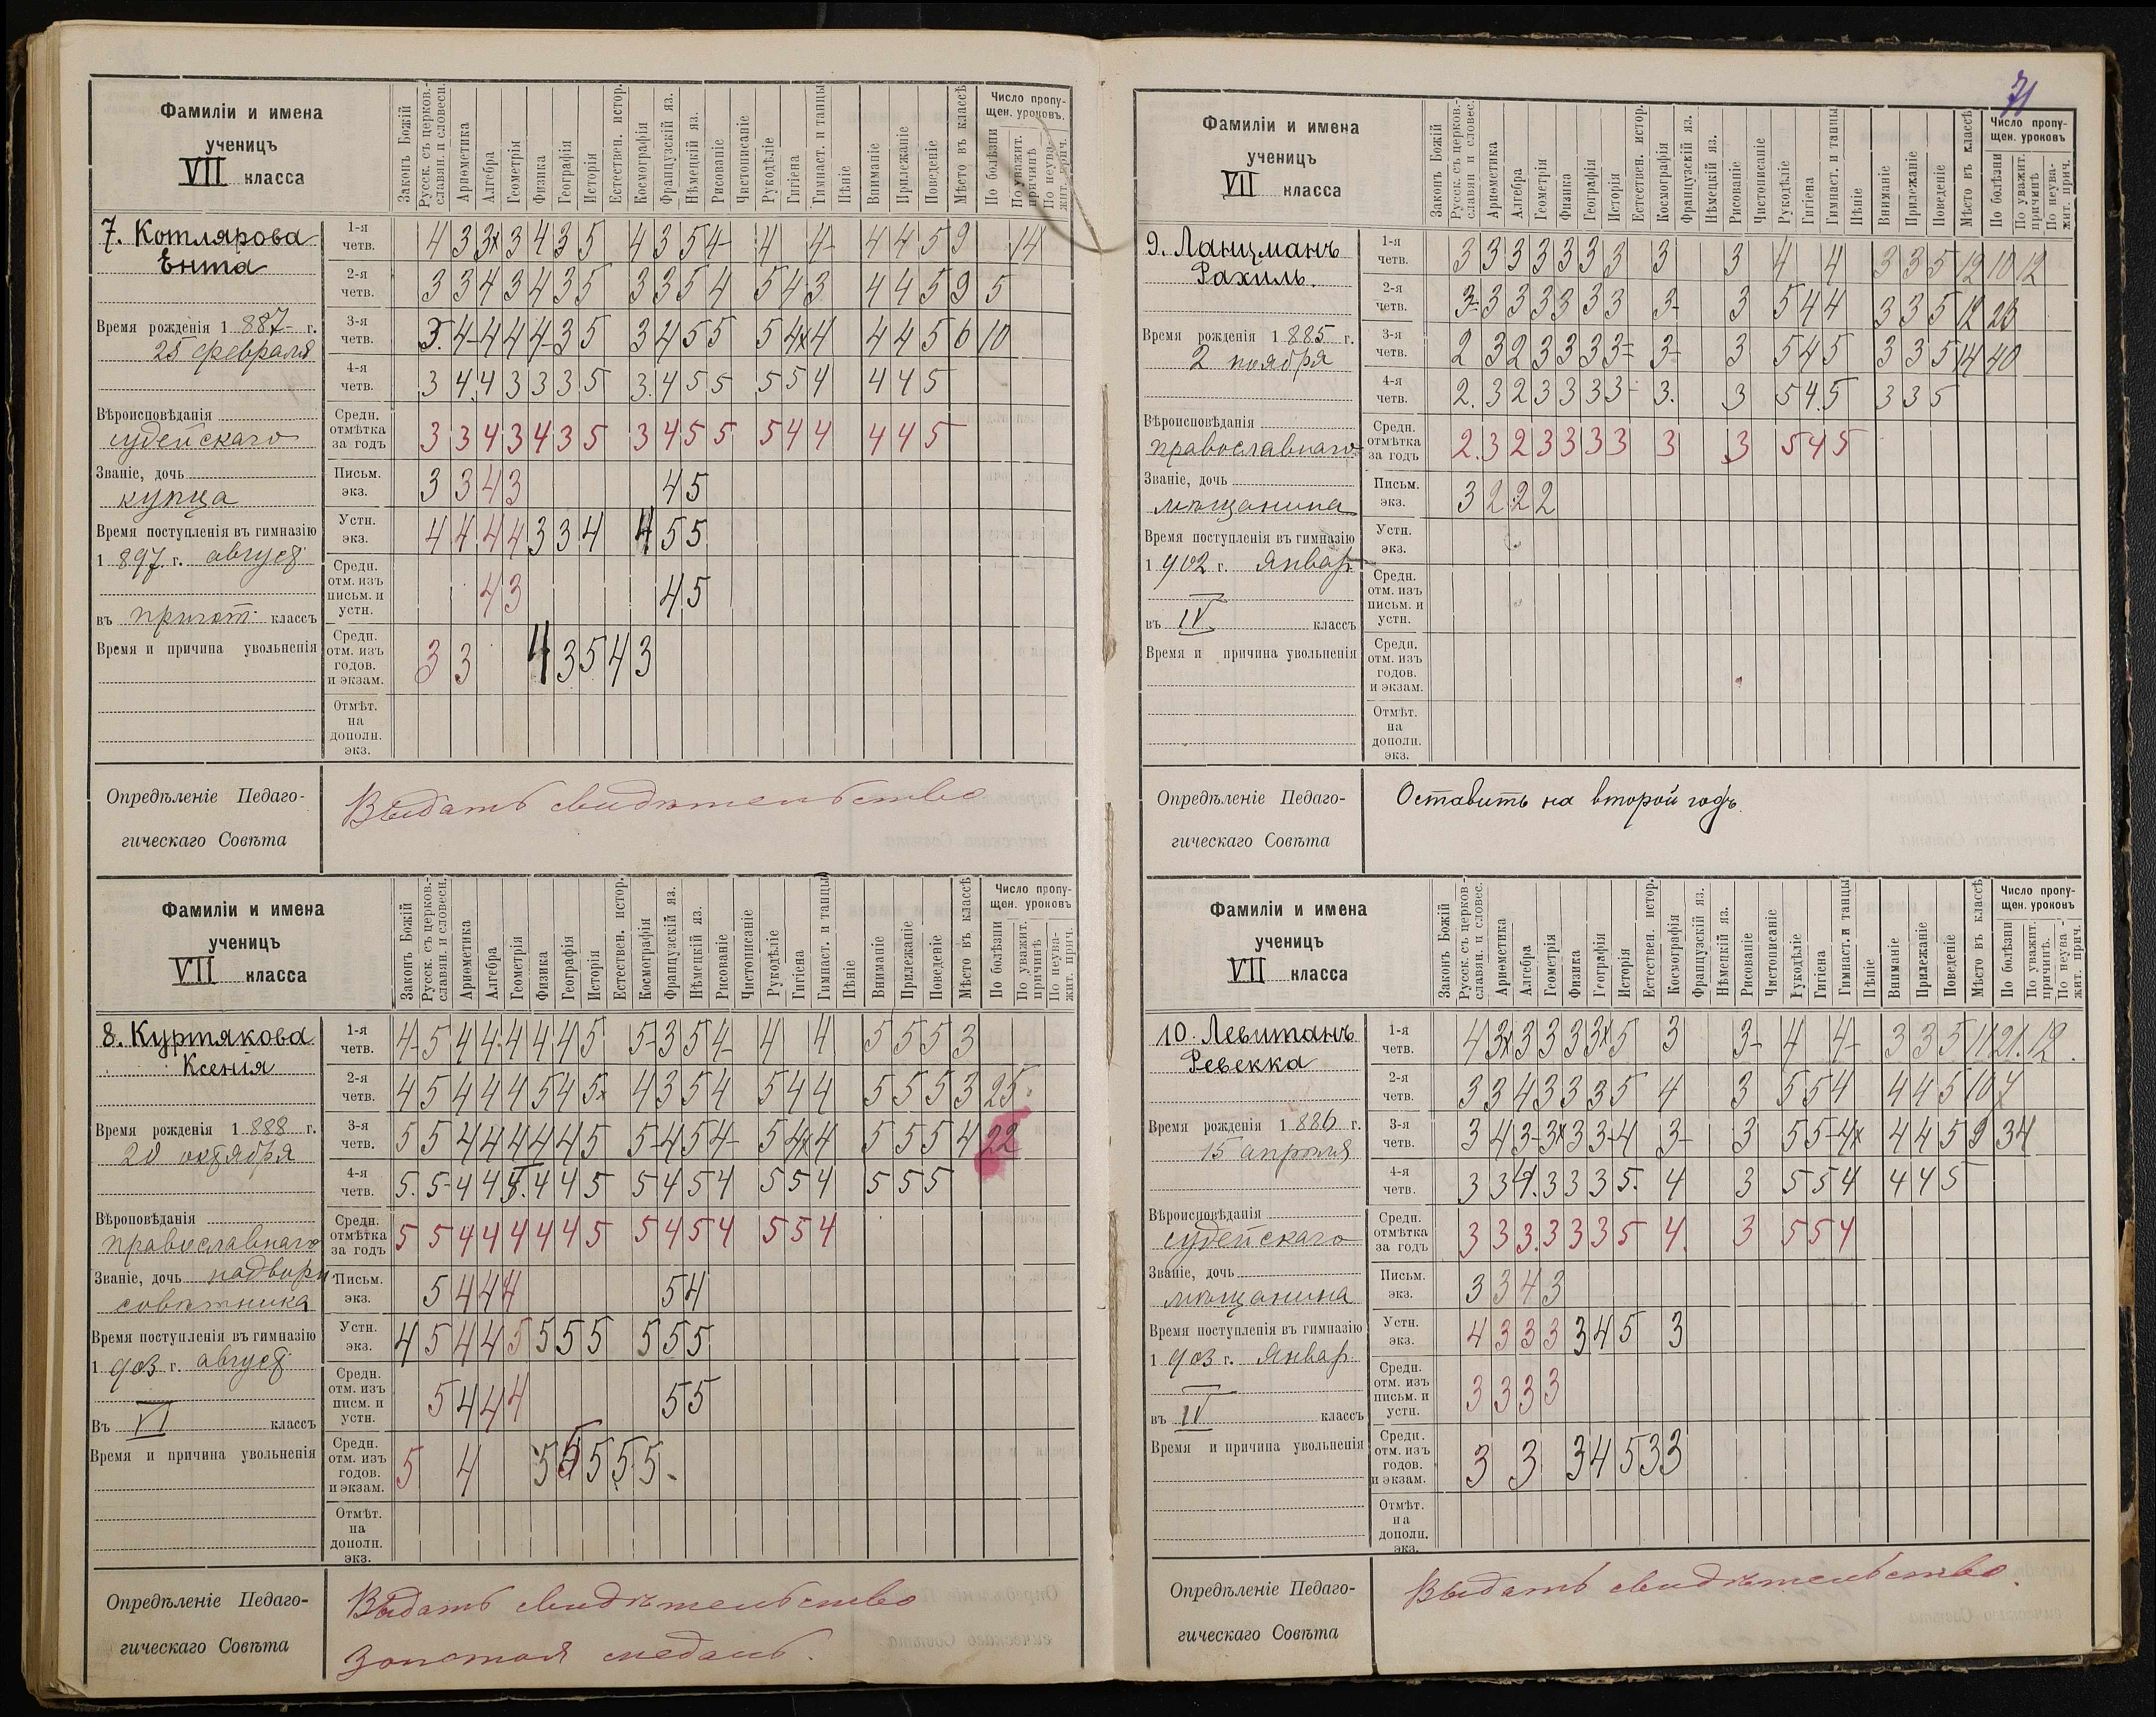 71
Фамиліи и имена
ученицъ
VII класса
Законъ Божій
Русск. съ церков.-
славян. и словесн.
Ариѳметика
Алгебра
Геометрія
Физика
Географія
Исторія
Естествен. истор.
Космографія
Французскій яз.
Нѣмецкій яз.
Рисованіе
Чистописаніе
Рукодѣліе
Гигіена
Гимнаст. и танцы
Пѣніе
Вниманіе
Прилежаніе
Поведеніе
Мѣсто въ классѣ
Число пропу-
щен. уроковъ.
По болѣзни
По уважит.
причинѣ
По неува-
жит. прич.
7. Котлярова
Ента
Время рожденія 1 887 г.
25 февраля
Вѣроисповѣданія
іудейскаго
Званіе, дочь
купца
Время поступленія въ гимназію
1 897 г. август
въ пригот. классъ
Время и причина увольненія
1-я четв. 4 3 3x 3 4 3 5 4 3 5 4- 4 4- 4 4 5 9 14
2-я четв. 3 3 4 3 4 3 5 3 3 5 4 5 4 3 4 4 5 9 5
3-я четв. 3. 4- 4 4 4- 3 5 3 4 5 5 5 4x 4 4 4 5 6 10
4-я четв. 3 4. 4 3 3 3 5 3. 4 5 5 5 5 4 4 4 5
Средн. отмѣтка за годъ 3 3 4 3 4 3 5 3 4 5 5 5 4 4 4 4 5
Письм. экз. 3 3 4 3 4 5
Устн. экз. 4 4 4 4 3 3 4 4 5 5
Средн. отм. изъ письм. и устн. 4 3 4 5
Средн. отм. изъ годов. и экзам. 3 3 4 3 5 4 3
Отмѣт. на дополн. экз.
Опредѣленіе Педаго-
гическаго Совѣта
Выдать свидѣтельство
Фамиліи и имена
ученицъ
VII класса
Законъ Божій
Русск. съ церков.-
славян. и словесн.
Ариѳметика
Алгебра
Геометрія
Физика
Географія
Исторія
Естествен. истор.
Космографія
Французскій яз.
Нѣмецкій яз.
Рисованіе
Чистописаніе
Рукодѣліе
Гигіена
Гимнаст. и танцы
Пѣніе
Вниманіе
Прилежаніе
Поведеніе
Мѣсто въ классѣ
Число пропу-
щен. уроковъ
По болѣзни
По уважит.
причинѣ
По неува-
жит. прич.
8. Куртякова
Ксенія
Время рожденія 1 888 г.
20 октября
Вѣроповѣданія
православнаго
Званіе, дочь надворн.
совѣтника
Время поступленія въ гимназію
1 903 г. август
Въ VI классъ
Время и причина увольненія
1-я четв. 4- 5 4 4 4 4 4 5 5- 3 5 4- 4 4 5 5 5 3
2-я четв. 4 5 4 4 4 5 4 5x 4 3 5 4 5 4 4 5 5 5 3 25
3-я четв. 5 5 4 4 4 4 4 5 5- 4 5 4- 5 4x 4 5 5 5 4 22
4-я четв. 5. 5- 4 4 5. 4 4 5 5 4 5 4 5 5 4 5 5 5
Средн. отмѣтка за годъ 5 5 4 4 4 4 4 5 5 4 5 4 5 5 4
Письм. экз. 5 4 4 4 5 4
Устн. экз. 4 5 4 4 5 5 5 5 5 5 5
Средн. отм. изъ писм. и устн. 5 4 4 4 5 5
Средн. отм. изъ годов. и экзам. 5 4 5 5 5 5 5-
Отмѣт. на дополн. экз.
Опредѣленіе Педаго-
гическаго Совѣта
Выдать свидѣтельство
Золотая медаль.
Фамиліи и имена
ученицъ
VII класса
Законъ Божій
Русск. съ церков.-
славян и словес.
Ариѳметика
Алгебра
Геометрія
Физика
Географія
Исторія
Естествен. истор.
Космографія
Французскій яз.
Нѣмецкій яз.
Рисованіе
Чистописаніе
Рукодѣліе
Гигіена
Гимнаст. и танцы
Пѣніе
Вниманіе
Прилежаніе
Поведеніе
Мѣсто въ классѣ
Число пропу-
щен. уроковъ
По болѣзни
По уважит.
причинѣ
По неува-
жит. прич.
9. Ланцманъ
Рахиль.
Время рожденія 1 885 г.
2 ноября
Вѣроисповѣданія
православнаго
Званіе, дочь
мѣщанина
Время поступленія въ гимназію
1 902 г. Январ.
въ IV. классъ
Время и причина увольненія
1-я четв. 3 3 3 3 3 3 3 3 3 4 4 3 3 5 12 10 12
2-я четв. 3- 3 3 3 3 3 3 3- 3 5 4 4 3 3 5 12 23
3-я четв. 2 3 2 3 3 3 3- 3- 3 5 4 5 3 3 5 14 40
4-я четв. 2. 3 2 3 3 3 3- 3. 3 5 4. 5 3 3 5
Средн. отмѣтка за годъ 2. 3 2 3 3 3 3 3 3 5 4 5
Письм. экз. 3 2 2 2
Устн. экз.
Средн. отм. изъ письм. и устн.
Средн. отм. изъ годов. и экзам.
Отмѣт. на дополн. экз.
Опредѣленіе Педаго-
гическаго Совѣта
Оставить на второй годъ.
Фамиліи и имена
ученицъ
VII класса
Законъ Божій
Русск. съ церков-
славян. и словес.
Ариѳметика
Алгебра
Геометрія
Физика
Географія
Исторія
Естествен. истор.
Космографія
Французскій яз.
Нѣмецкій яз.
Рисованіе
Чистописаніе
Рукодѣліе
Гигіена
Гимнаст. и танцы
Пѣніе
Вниманіе
Прилежаніе
Поведеніе
Мѣсто въ классѣ
Число пропу-
щен. уроковъ
По болѣзни
По уважит.
причинѣ.
По неува-
жит. прич.
10. Левитанъ
Ревекка
Время рожденія 1 886 г.
15 апрѣля
Вѣроисповѣданія
іудейскаго
Званіе, дочь
мѣщанина
Время поступленія въ гимназію
1 903 г. Январ.
въ IV классъ
Время и причина увольненія
1-я четв. 4 3x 3 3 3 3x 5 3 3- 4 4- 3 3 5 11 21. 12.
2-я четв. 3 3 4 3 3 3 5 4 3 5 5 4 4 4 5 10 7
3-я четв. 3 4 3- 3x 3 3- 4 3- 3 5 5- 4x 4 4 5 9 34
4-я четв. 3 3 4. 3 3 3 5. 4 3 5 5 4 4 4 5
Средн. отмѣтка за годъ 3 3 3. 3 3 3 5 4. 3 5 5 4
Письм. экз. 3 3 4 3
Устн. экз. 4 3 3 3 3 4 5 3
Средн. отм. изъ писъм. и устн. 3 3 3 3
Средн. отм. изъ годов. и экзам. 3 3 3 4 5 3 3
Отмѣт. на дополн. экз.
Опредѣленіе Педаго-
гическаго Совѣта
Выдать свидѣтельство.